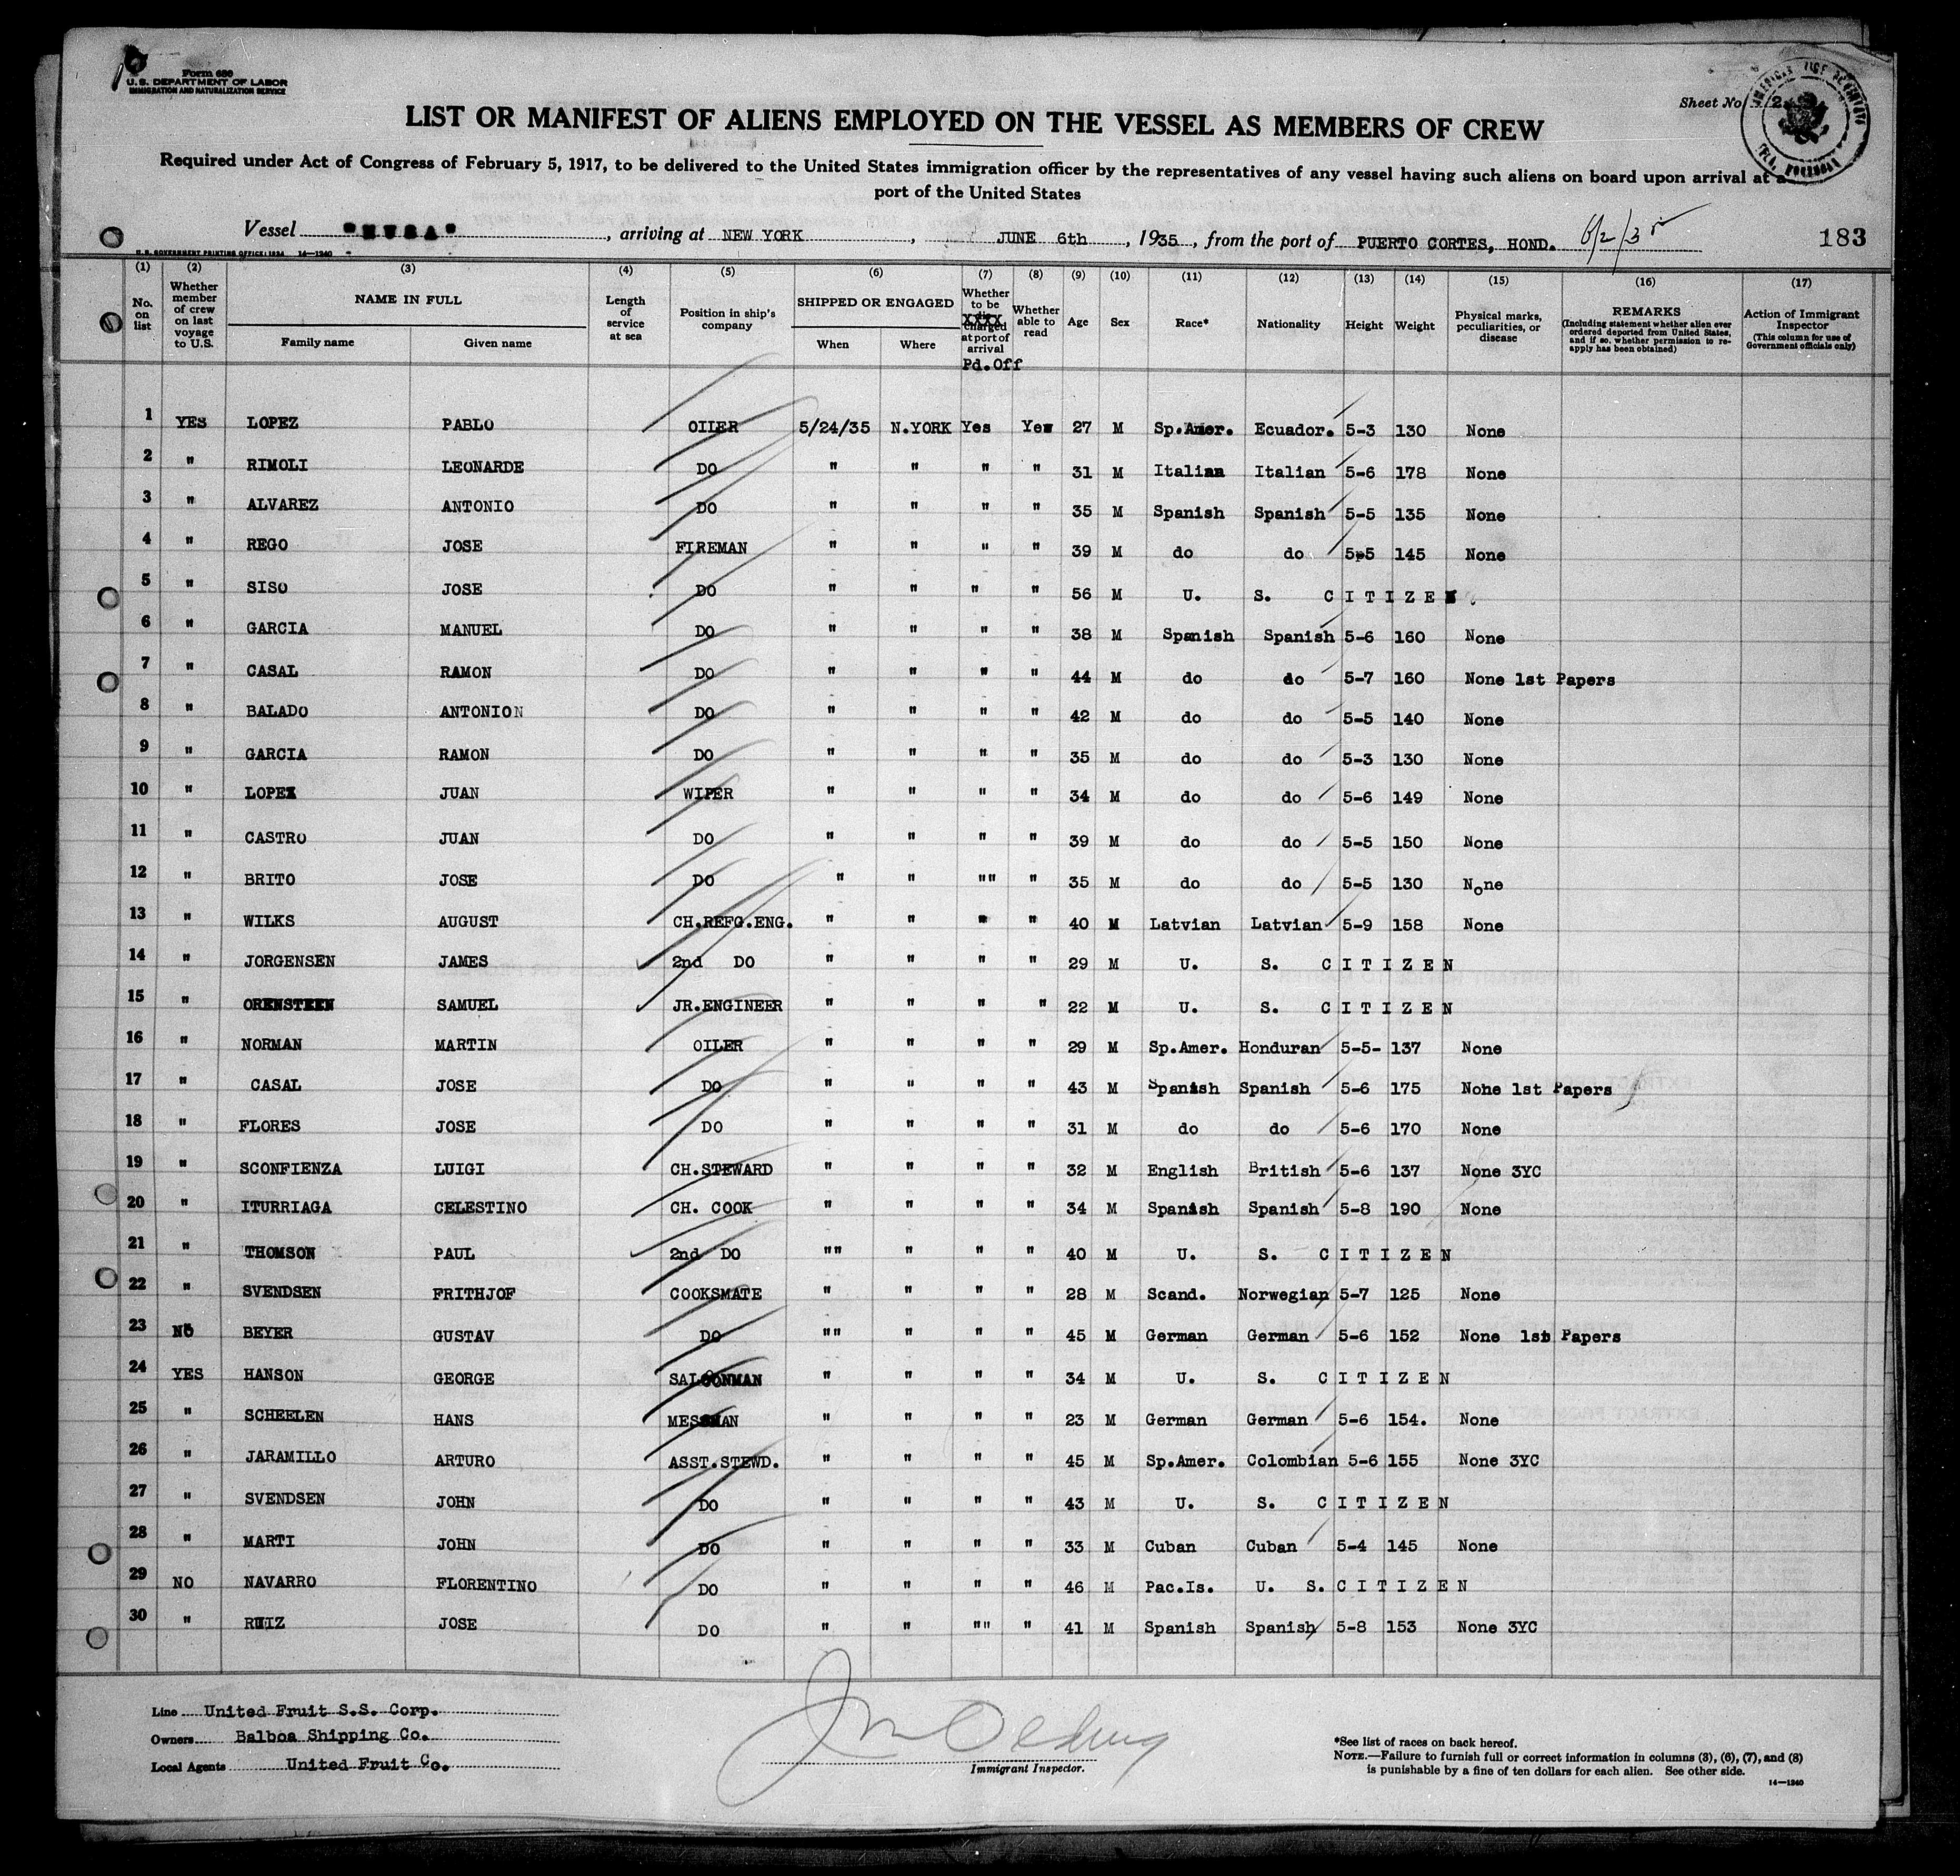 Form 680
U. S. DEPARTMENT OF LABOR
IMMIGRATION AND NATURALIZATION SERVICE
Sheet No. 2
LIST OR MANIFEST OF ALIENS EMPLOYED ON THE VESSEL AS MEMBERS OF CREW
Required under Act of Congress of February 5, 1917, to be delivered to the United States immigration officer by the representatives of any vessel having such aliens on board upon arrival at a
port of the United States
Vessel "MUSA", arriving at NEW YORK, JUNE 6th, 1935, from the port of PUERTO CORTES, HOND. 6/2/35 183
U. S. GOVERNMENT PRINTING OFFICE: 1934 14—1240
(1) (2) (3) (4) (5) (6) (7) (8) (9) (10) (11) (12) (13) (14) (15) (16) (17)
No. on list
Whether member of crew on last voyage to U.S.
NAME IN FULL
Family name Given name
Length of service at sea
Position in ship's company
SHIPPED OR ENGAGED
When Where
Whether to be XXXX charged at port of arrival Pd.Off
Whether able to read
Age
Sex
Race*
Nationality
Height
Weight
Physical marks, peculiarities, or disease
REMARKS
(Including statement whether alien ever ordered deported from United States, and if so, whether permission to re-apply has been obtained)
Action of Immigrant Inspector
(This column for use of Government officials only)
1 YES LOPEZ PABLO OIIER 5/24/35 N.YORK Yes Yes 27 M Sp.Amer. Ecuador. 5-3 130 None
2 " RIMOLI LEONARDE DO " " " " 31 M Italian Italian 5-6 178 None
3 " ALVAREZ ANTONIO DO " " " " 35 M Spanish Spanish 5-5 135 None
4 " REGO JOSE FIREMAN " " " " 39 M do do 5-5 145 None
5 " SISO JOSE DO " " " " 56 M U. S. CITIZEN
6 " GARCIA MANUEL DO " " " " 38 M Spanish Spanish 5-6 160 None
7 " CASAL RAMON DO " " " " 44 M do do 5-7 160 None 1st Papers
8 " BALADO ANTONION DO " " " " 42 M do do 5-5 140 None
9 " GARCIA RAMON DO " " " " 35 M do do 5-3 130 None
10 " LOPEZ JUAN WIPER " " " " 34 M do do 5-6 149 None
11 " CASTRO JUAN DO " " " " 39 M do do 5-5 150 None
12 " BRITO JOSE DO " " "" " 35 M do do 5-5 130 None
13 " WILKS AUGUST CH.REFG.ENG. " " " " 40 M Latvian Latvian 5-9 158 None
14 " JORGENSEN JAMES 2nd DO " " " " 29 M U. S. CITIZEN
15 " ORENSTEEN SAMUEL JR.ENGINEER " " " " 22 M U. S. CITIZEN
16 " NORMAN MARTIN OILER " " " " 29 M Sp.Amer. Honduran 5-5- 137 None
17 " CASAL JOSE DO " " " " 43 M Spanish Spanish 5-6 175 None 1st Papers
18 " FLORES JOSE DO " " " " 31 M do do 5-6 170 None
19 " SCONFIENZA LUIGI CH.STEWARD " " " " 32 M English British 5-6 137 None 3YC
20 " ITURRIAGA CELESTINO CH. COOK " " " " 34 M Spanish Spanish 5-8 190 None
21 " THOMSON PAUL 2nd DO "" " " " 40 M U. S. CITIZEN
22 " SVENDSEN FRITHJOF COOKSMATE " " " " 28 M Scand. Norwegian 5-7 125 None
23 NO BEYER GUSTAV DO "" " " " 45 M German German 5-6 152 None 1st Papers
24 YES HANSON GEORGE SALOONMAN " " " " 34 M U. S. CITIZEN
25 " SCHEELEN HANS MESSMAN " " " " 23 M German German 5-6 154. None
26 " JARAMILLO ARTURO ASST.STEWD. " " " " 45 M Sp.Amer. Colombian 5-6 155 None 3YC
27 " SVENDSEN JOHN DO " " " " 43 M U. S. CITIZEN
28 " MARTI JOHN DO " " " " 33 M Cuban Cuban 5-4 145 None
29 NO NAVARRO FLORENTINO DO " " " " 46 M Pac.Is. U. S.CITIZEN
30 " RUIZ JOSE DO " " "" " 41 M Spanish Spanish 5-8 153 None 3YC
Line United Fruit S.S. Corp.
Owners Balboa Shipping Co.
Local Agents United Fruit Co.
Immigrant Inspector.
*See list of races on back hereof.
NOTE.—Failure to furnish full or correct information in columns (3), (6), (7), and (8)
is punishable by a fine of ten dollars for each alien. See other side.
14—1240